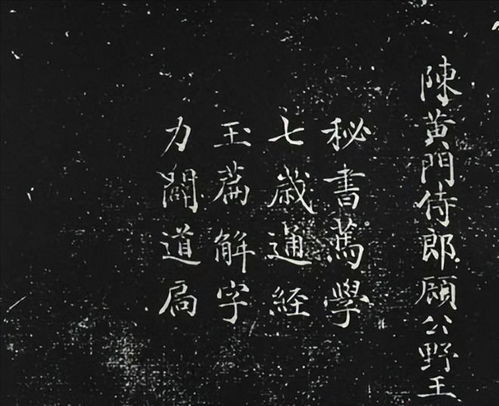 陳黄門侍郎顧公野王
秘書篤學
七歲通経
玉篇解字
力闢道扃